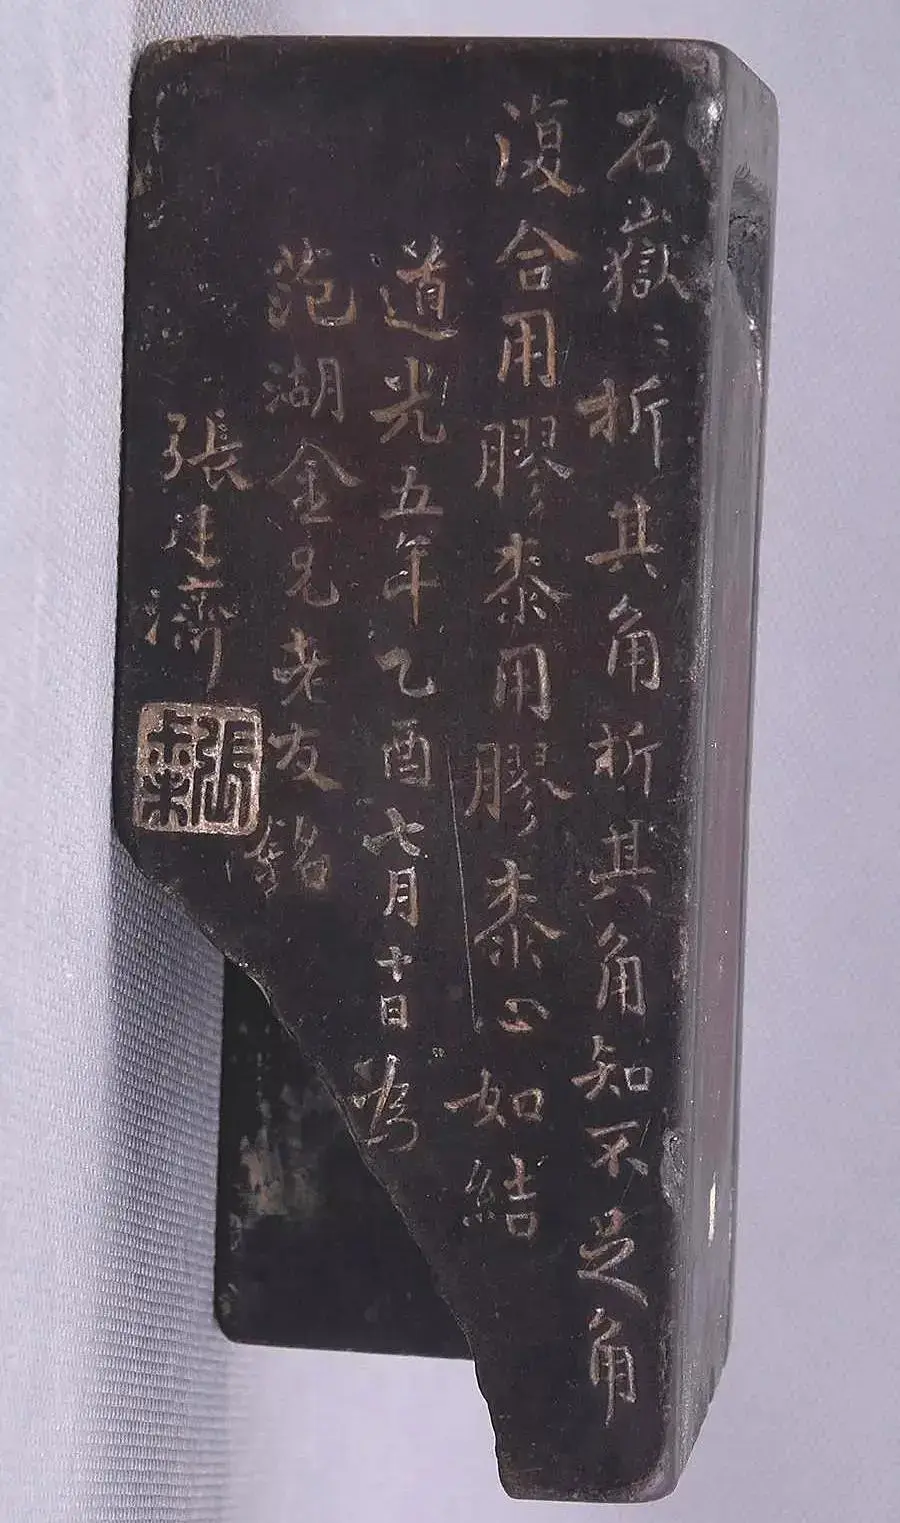 石嶽〻折其角折其角知不足角
復合用膠桼用膠桼心如結
道光五年乙酉七月十日為
范湖金兄老友銘
張廷濟
張叔未